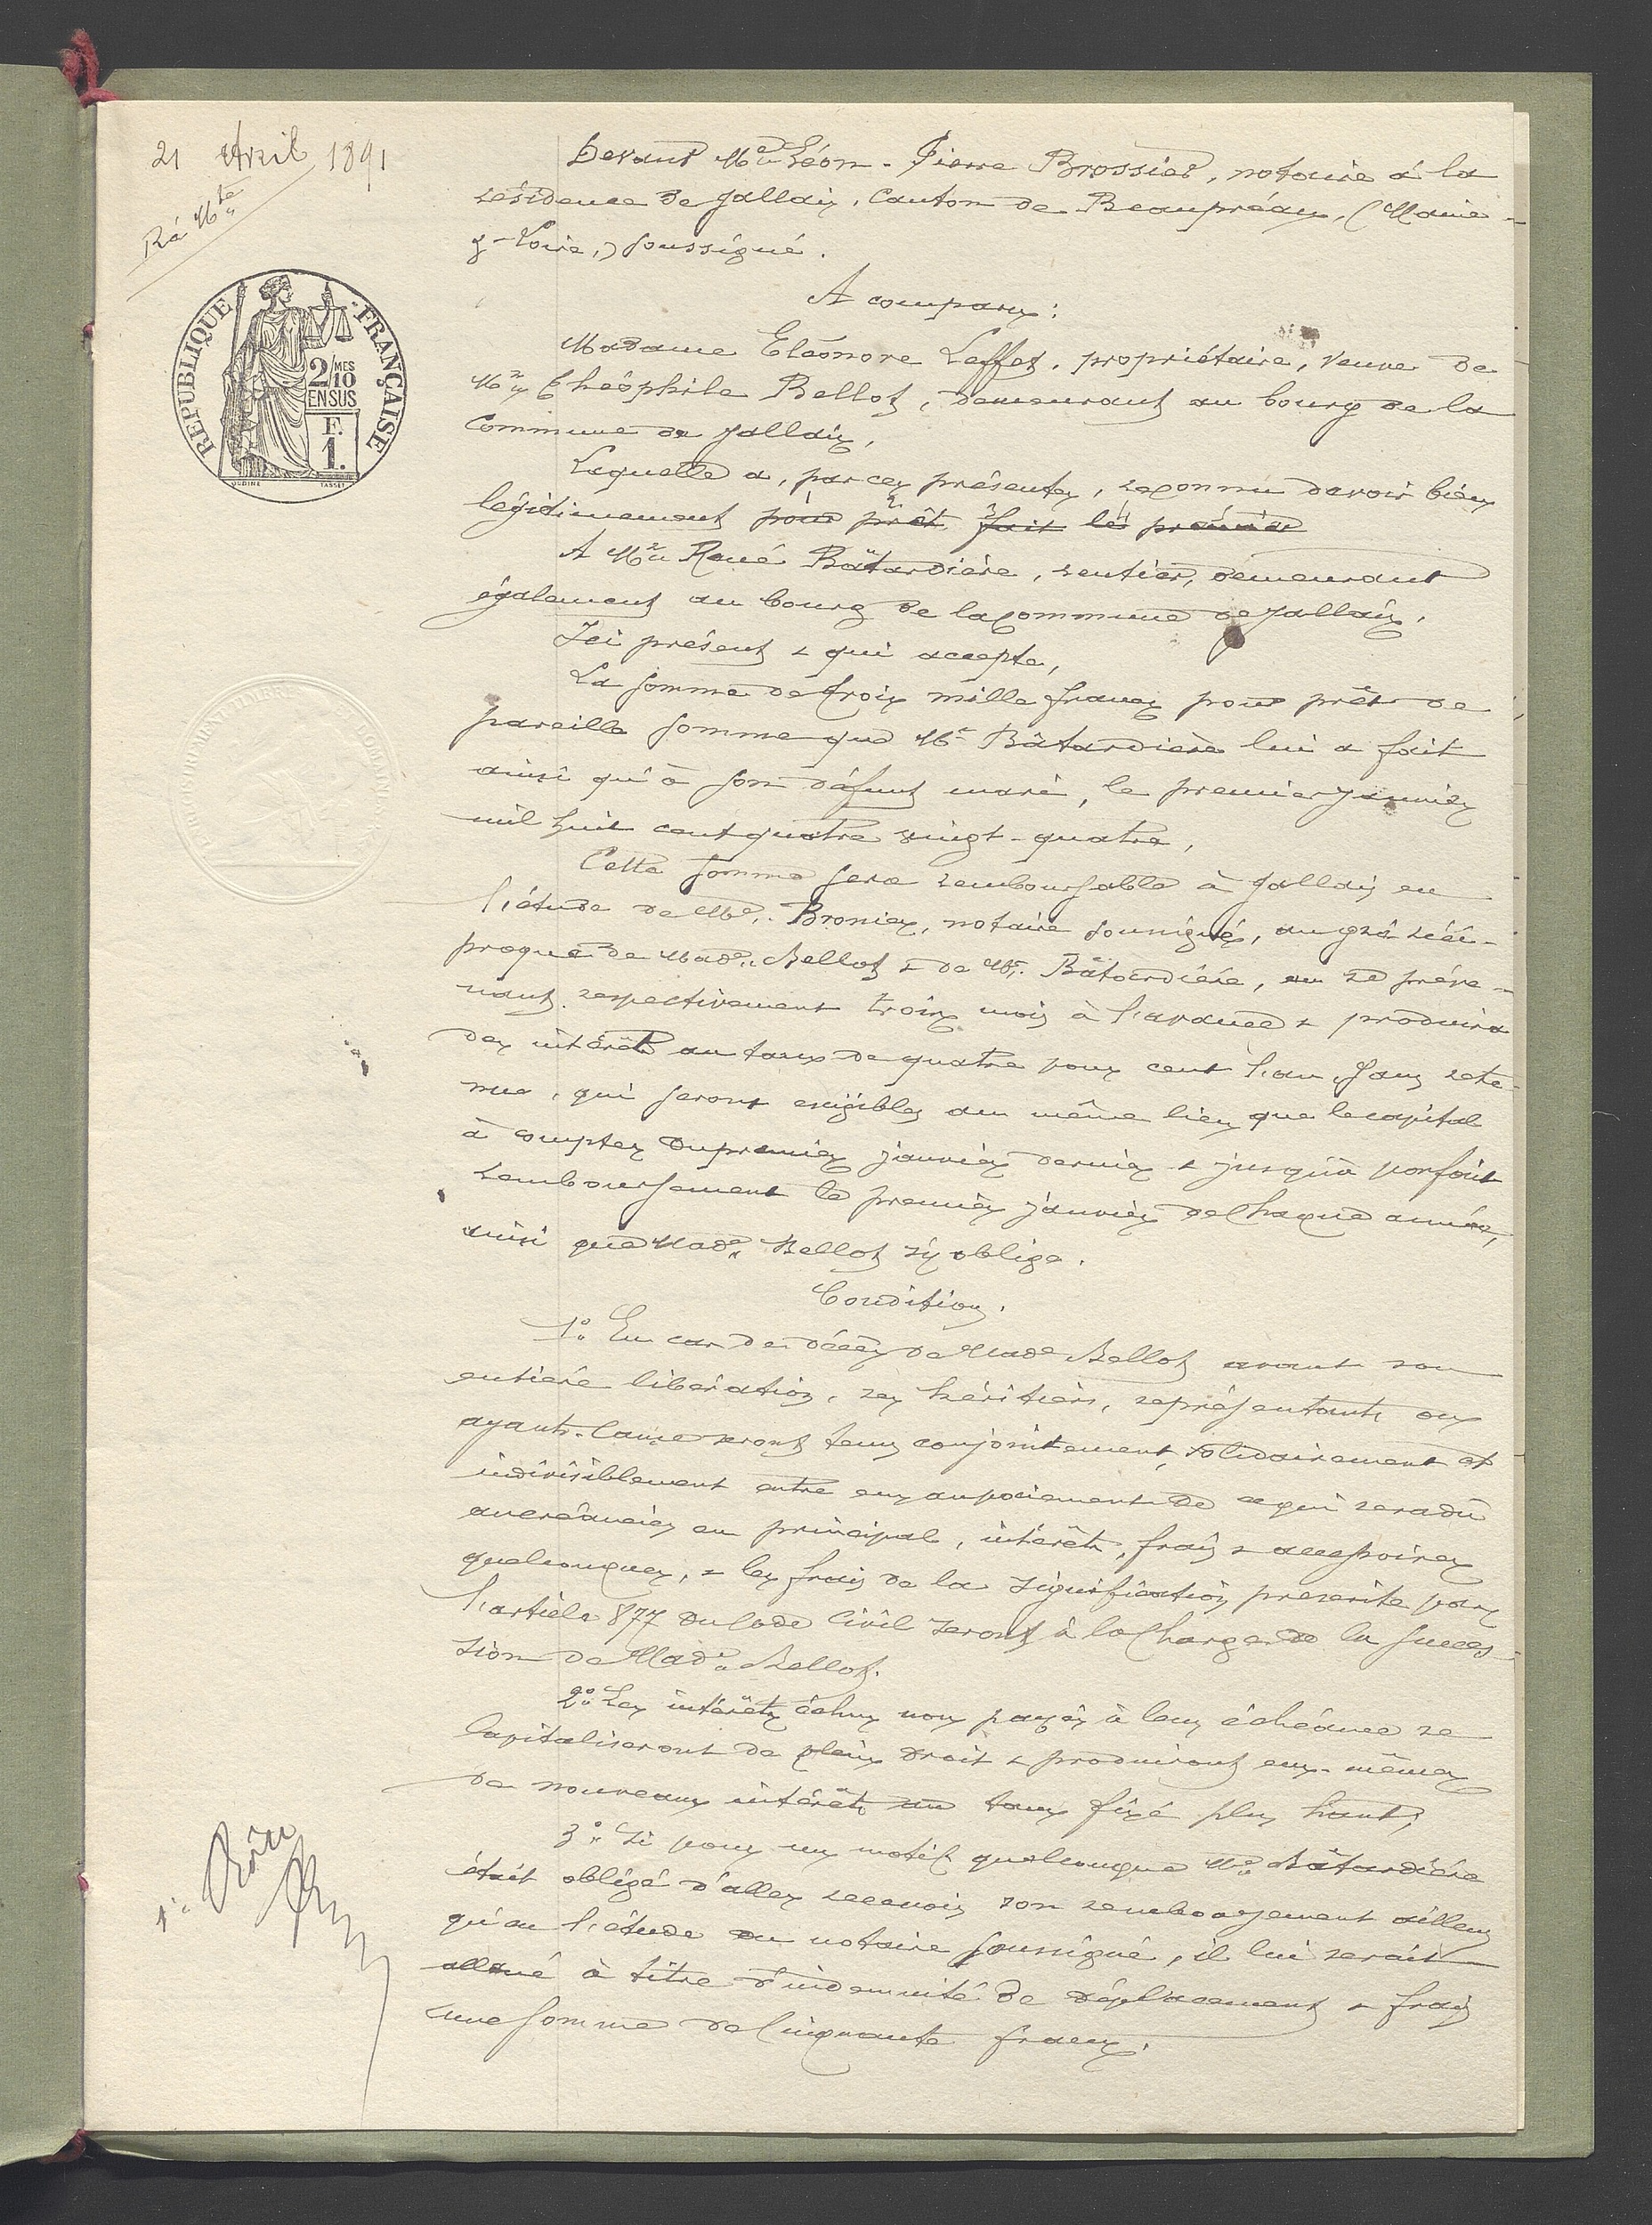 21 Avril 1891
Ré Mte
REPUBLIQUE FRANÇAISE
2/10 MES
EN SUS
F.
1.
OUDINE TASSET
Devant Me Léon-Pierre Brossier, notaire à la
résidence de Jallais, canton de Beaupréau, (Maine-
&-Loire,) soussigné.
A comparu:
Madame Eléonore Leffet, propriétaire, veuve de
Mr Théophile Bellot, demeurant au bourg de la
Commune de Jallais,
Laquelle a, par ces présentes, reconnu devoir bien
légitimement pour prêt fait le premier
A Mr René Bâtardière, rentier, demeurant
également au bourg de la commune de Jallais,
Ici présent & qui accepte,
La somme de trois mille francs pour prêt de
pareille somme que Mr Bâtardière lui a fait
ainsi qu'à son défunt mari, le premier janvier
mil huit cent quatre vingt-quatre,
Cette somme sera remboursable à Jallais en
l'étude de Me Brossier, notaire soussigné, au gré réci-
proque de Made Bellot & de Mr Bâtardière, en se préve-
nant respectivement trois mois à l'avance & produira
des intérêts au taux de quatre pour cent l'an, sans rete-
nue, qui seront exigibles au même lieu que le capital
à compter du premier janvier dernier & jusqu'à parfait
remboursement le premier janvier de chaque année,
ainsi que Made Bellot s'y oblige.
Conditions.
1° En cas de décès de Made Bellot avant son
entière libération, ses héritiers, représentants ou
ayants-cause seront tenus conjointement, solidairement et
indivisiblement entre eux au paiement de ce qui sera dû
au créancier en principal, intérêts, frais & accessoires
quelconques, & les frais de la signification prescrite par
l'article 877 du Code Civil seront à la charge de la succes-
sion de Made Bellot.
2° Les intérêts échus non payés à leur échéance se
capitaliseront de plein droit & produiront eux-mêmes
de nouveaux intérêts au taux fixé plus haut;
3° Si pour un motif quelconque Mr Bâtardière
était obligé d'aller recevoir son remboursement ailleurs
qu'en l'étude du notaire soussigné, il lui serait
alloué à titre d'indemnité de déplacement & frais
une somme de cinquante francs.
1er Rôle